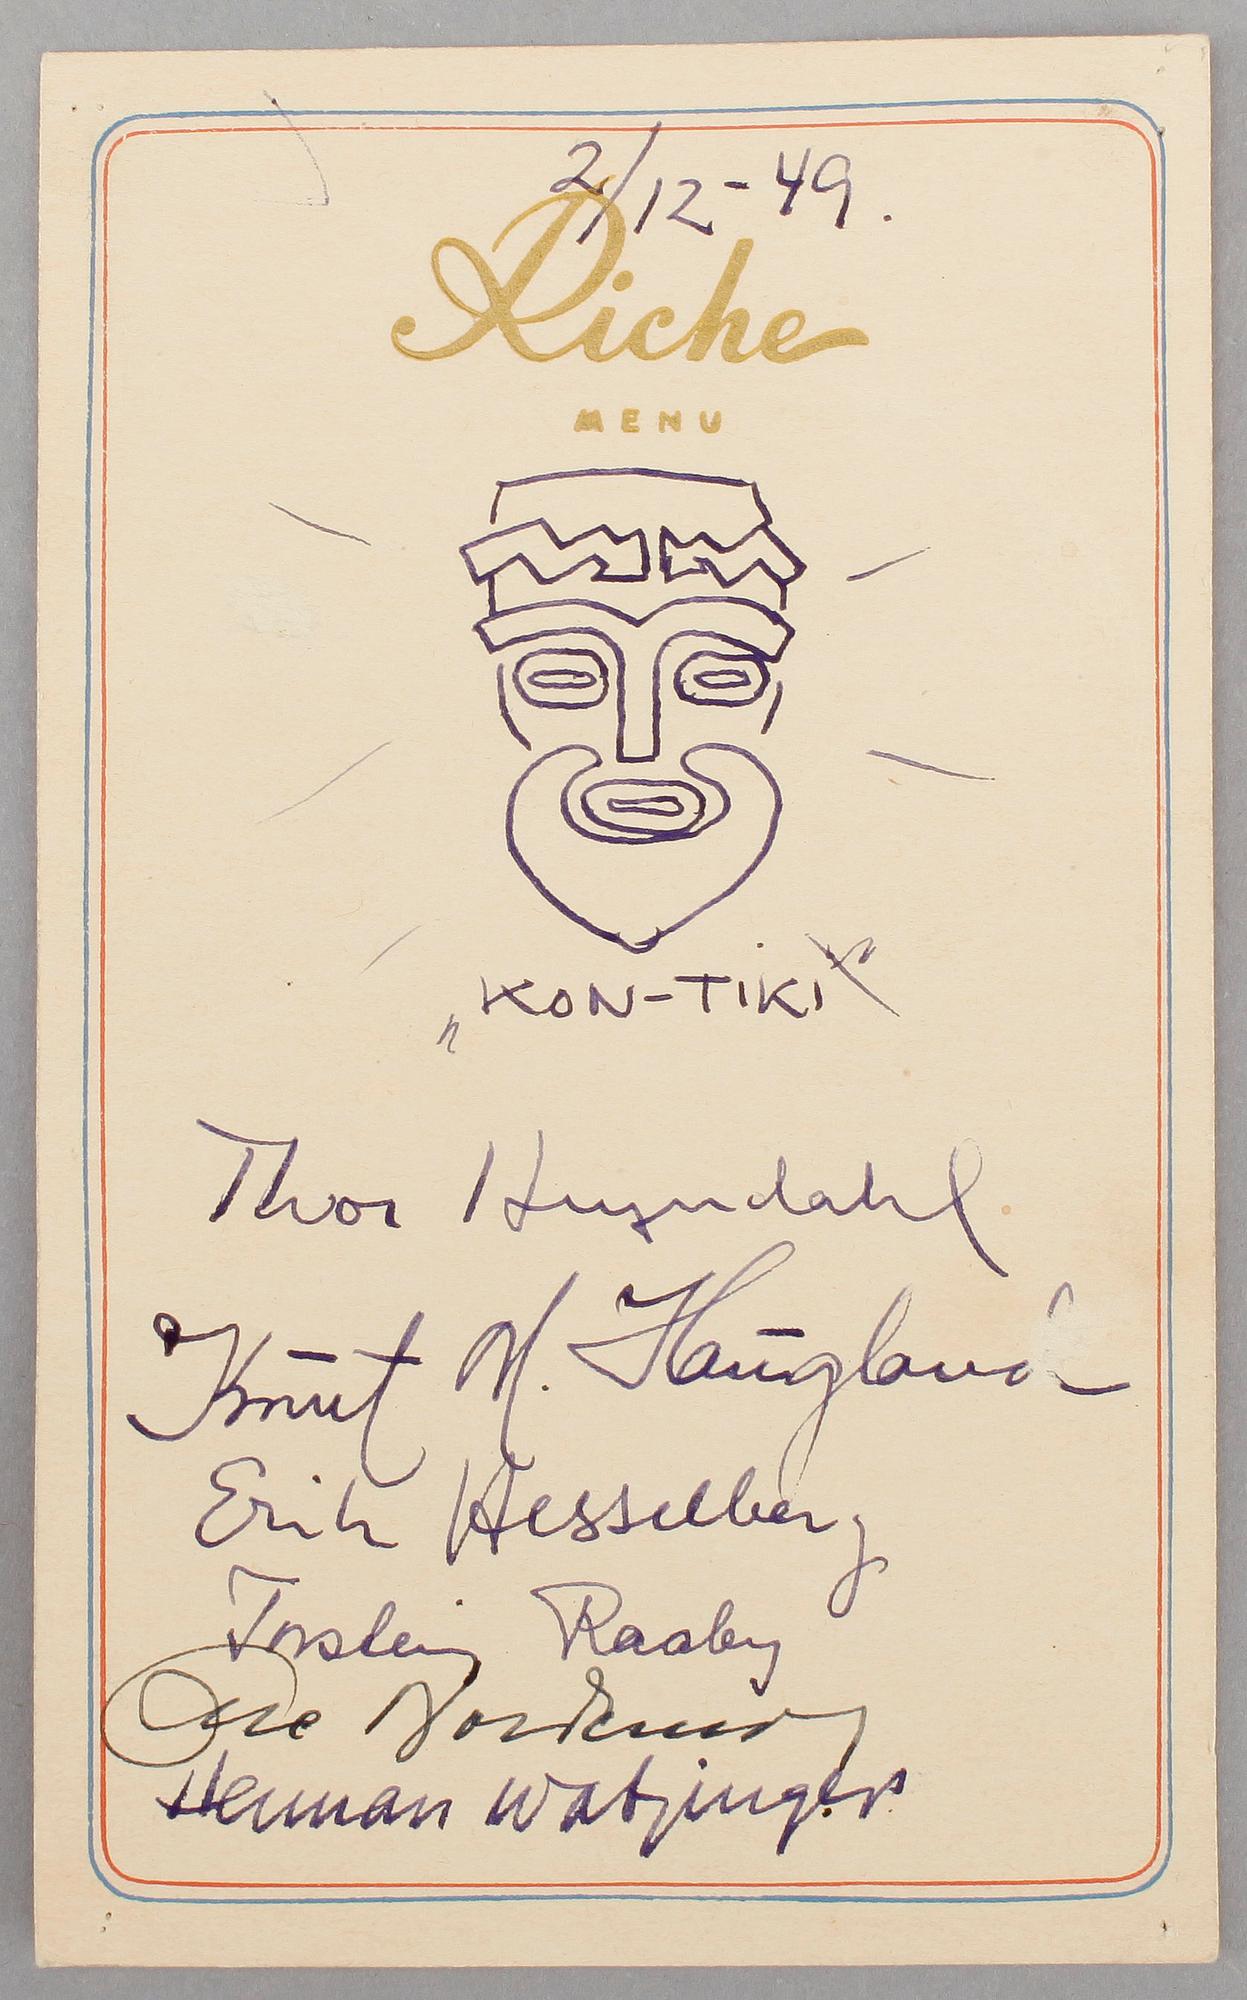 2/12-49.
Riche
MENU
„KON-TIKI"
Thor Heyerdahl
Knut M. Haugland
Erik Hesselberg
Torstein Raaby
Nordemar
Herman Watzinger